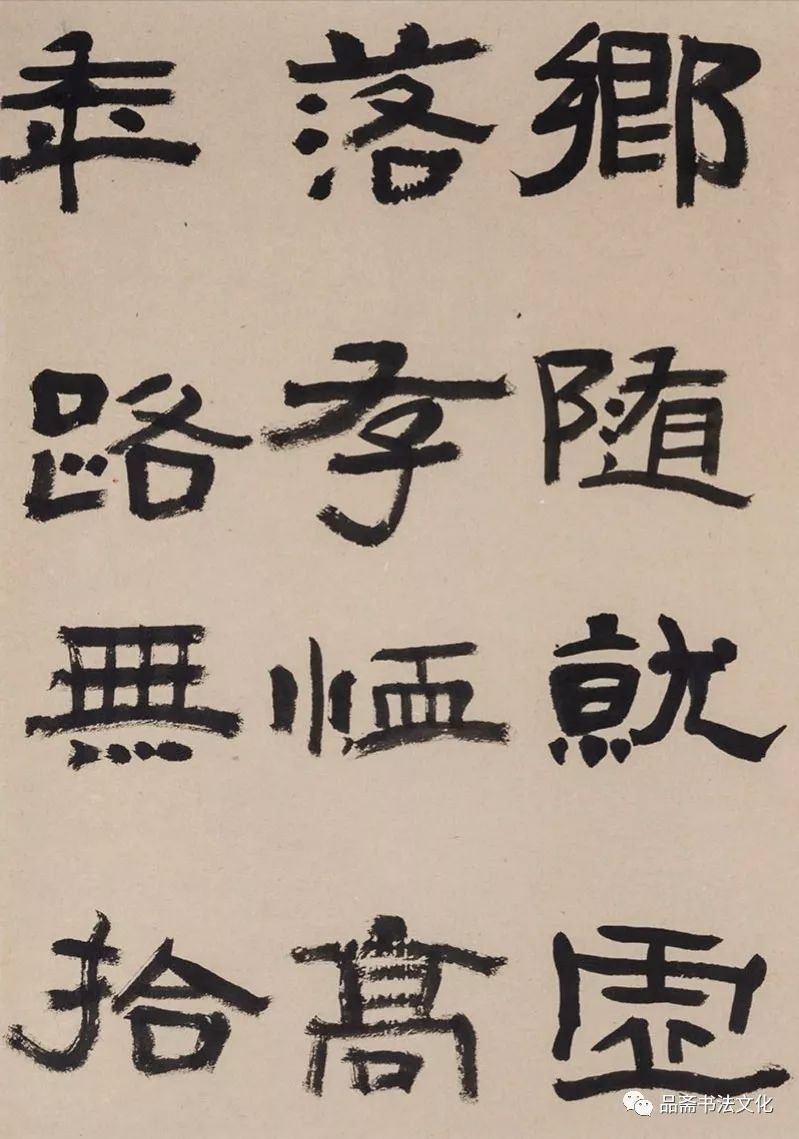 鄉隨就虛
落存恤高
年路無拾
品斋书法文化